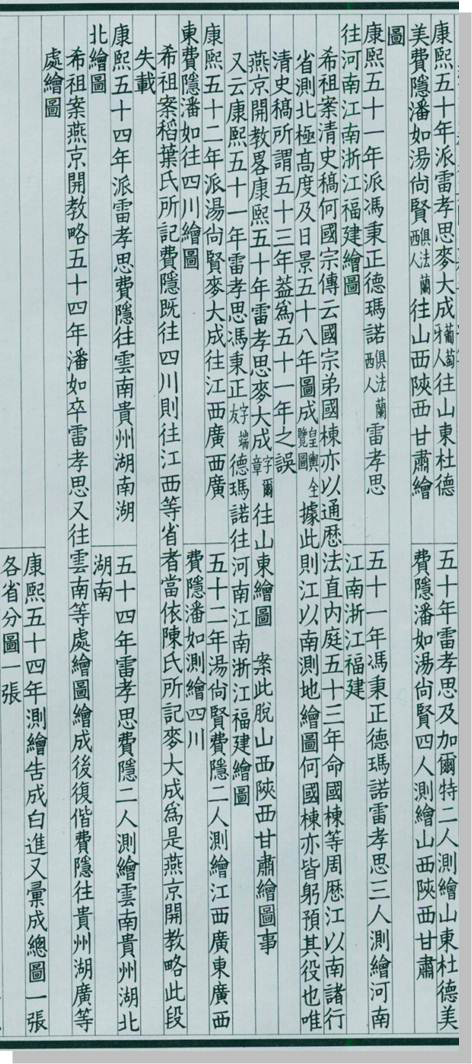 康熙五十年派雷孝思麥大成葡萄牙人往山東杜德　五十年雷孝思及加爾特二人測繪山東杜德美
美費隱潘如湯尙賢俱法蘭西人往山西陝西甘肅繪　費隱潘如湯尙賢四人測繪山西陝西甘肅
圖
康熙五十一年派馮秉正德瑪諾俱法蘭西人雷孝思　五十一年馮秉正德瑪諾雷孝思三人測繪河南
往河南江南浙江福建繪圖　江南浙江福建
希祖案清史稿何國宗傳云國宗弟國棟亦以通歷法直內庭五十三年命國棟等周歷江以南諸行
省測北極高度及日景五十八年圖成皇輿全覽圖據此則江以南測地繪圖何國棟亦皆躬預其役也唯
清史稿所謂五十三年葢爲五十一年之誤
燕京開敎畧康熙五十年雷孝思麥大成字爾章往山東繪圖　案此脫山西陝西甘肅繪圖事
又云康熙五十一年雷孝思馮秉正字端友德瑪諾往河南江南浙江福建繪圖
康熙五十二年派湯尙賢麥大成往江西廣西廣　五十二年湯尙賢費隱二人測繪江西廣東廣西
東費隱潘如往四川繪圖　費隱潘如測繪四川
希祖案稻葉氏所記費隱旣往四川則往江西等省者當依陳氏所記麥大成爲是燕京開敎略此段
失載
康熙五十四年派雷孝思費隱往雲南貴州湖南湖　五十四年雷孝思費隱二人測繪雲南貴州湖北
北繪圖　湖南
希祖案燕京開敎略五十四年潘如卒雷孝思又往雲南等處繪圖繪成後復偕費隱往貴州湖廣等
處繪圖
康熙五十四年測繪告成白進又彙成總圖一張
各省分圖一張